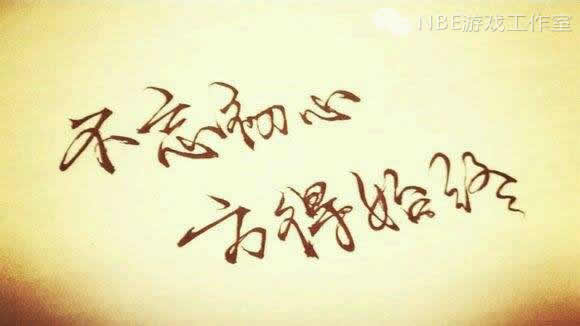 NBE游戏工作室
不忘初心
方得始终